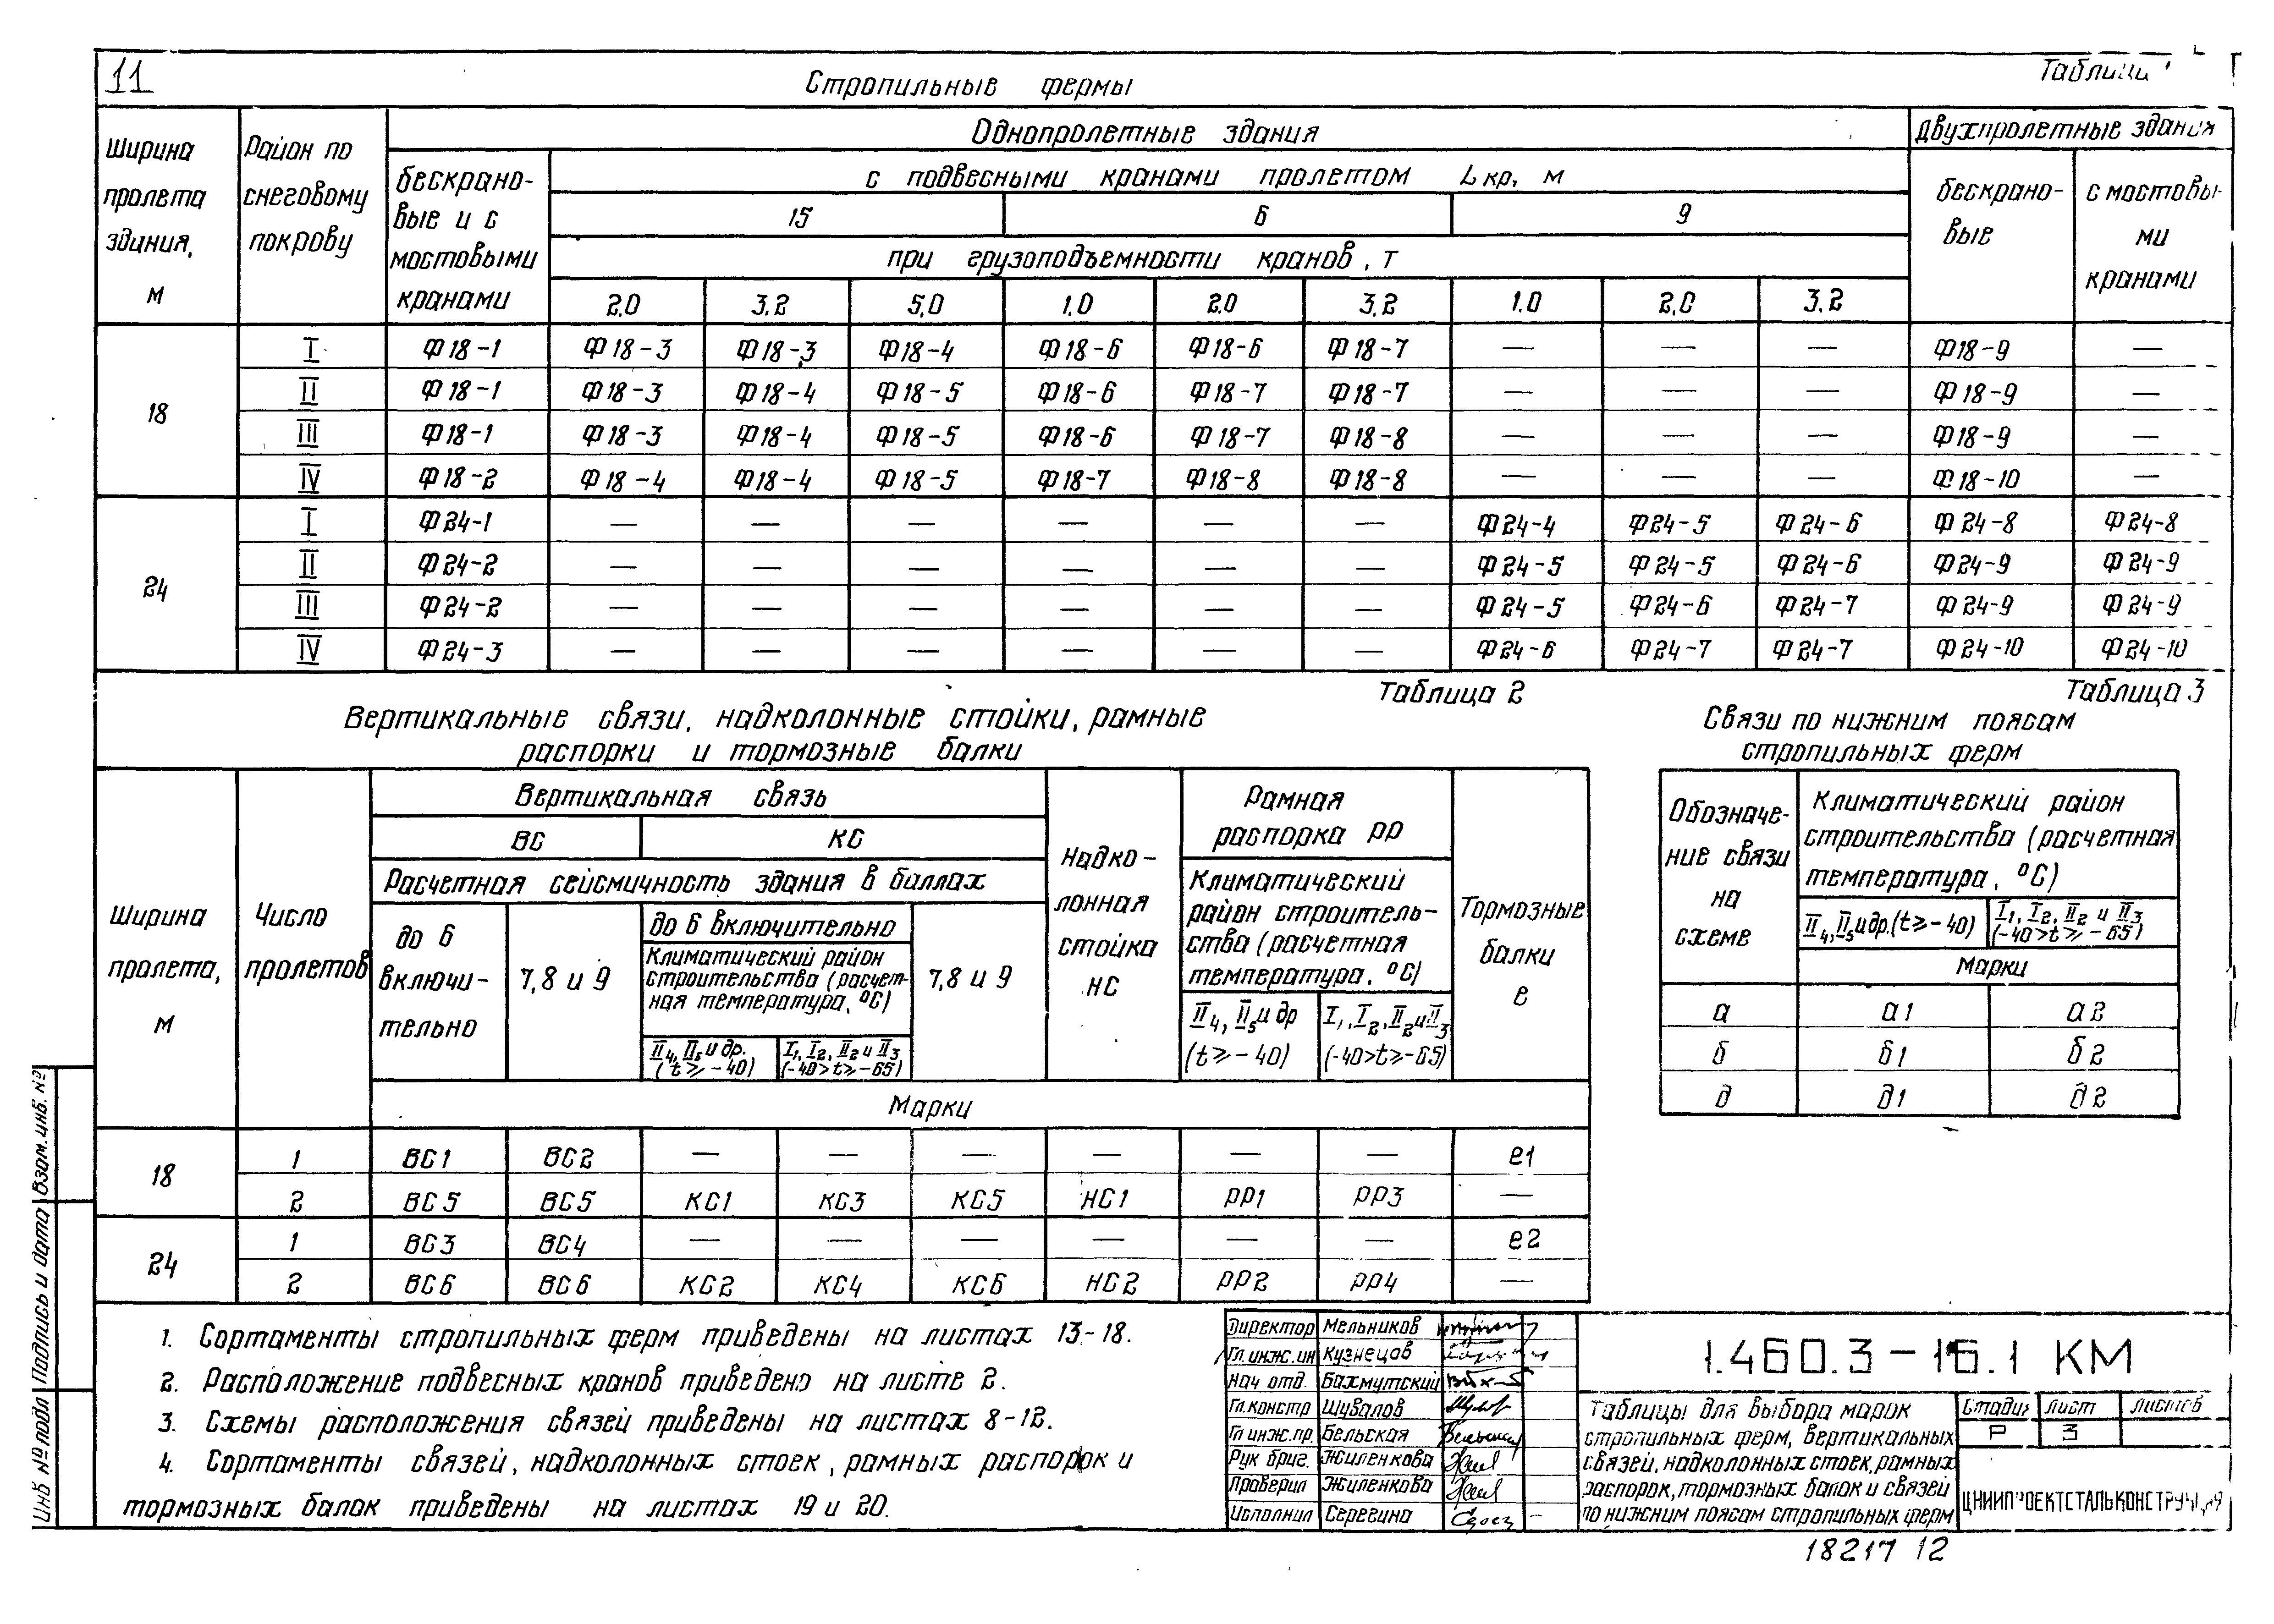 11
Стропильные фермы
Таблица
Ширина пролета здания, м
Район по снеговому покрову
Однопролетные здания
Двухпролетные здания
бескрано-вые и с мостовыми кранами
с подвесными кранами пролетом Lкр, м
бескрано-вые
с мостовы-ми кранами
15 6 9
при грузоподъемности кранов, т
2,0 3,2 5,0 1,0 2,0 3,2 1,0 2,0 3,2
18
I Ф18-1 Ф18-3 Ф18-3 Ф18-4 Ф18-6 Ф18-6 Ф18-7 — — — Ф18-9 —
II Ф18-1 Ф18-3 Ф18-4 Ф18-5 Ф18-6 Ф18-7 Ф18-7 — — — Ф18-9 —
III Ф18-1 Ф18-3 Ф18-4 Ф18-5 Ф18-6 Ф18-7 Ф18-8 — — — Ф18-9 —
IV Ф18-2 Ф18-4 Ф18-4 Ф18-5 Ф18-7 Ф18-8 Ф18-8 — — — Ф18-10 —
24
I Ф24-1 — — — — — — Ф24-4 Ф24-5 Ф24-6 Ф24-8 Ф24-8
II Ф24-2 — — — — — — Ф24-5 Ф24-5 Ф24-6 Ф24-9 Ф24-9
III Ф24-2 — — — — — — Ф24-5 Ф24-6 Ф24-7 Ф24-9 Ф24-9
IV Ф24-3 — — — — — — Ф24-6 Ф24-7 Ф24-7 Ф24-10 Ф24-10
Таблица 2
Вертикальные связи, надколонные стойки, рамные
распорки и тормозные балки
Ширина пролета, м
Число пролетов
Вертикальная связь
ВС КС
Расчетная сейсмичность здания в баллах
до 6 включи-тельно
7,8 и 9
до 6 включительно
Климатический район строительства (расчет-ная температура, °С)
II4, II5 и др. (t ⩾ -40)
I1, I2, II2 и II3 (-40>t⩾-65)
7,8 и 9
Надко-лонная стойка НС
Рамная распорка РР
Климатический район строитель-ства (расчетная температура, °С)
II4, II5 и др (t⩾-40)
I1, I2, II2 и II3 (-40>t⩾-65)
Тормозные балки е
Марки
18
1 ВС1 ВС2 — — — — — — е1
2 ВС5 ВС5 КС1 КС3 КС5 НС1 РР1 РР3 —
24
1 ВС3 ВС4 — — — — — — е2
2 ВС6 ВС6 КС2 КС4 КС6 НС2 РР2 РР4 —
Таблица 3
Связи по нижним поясам
стропильных ферм
Обозначе-ние связи на схеме
Климатический район строительства (расчетная температура, °С)
II4, II5 и др. (t⩾-40)
I1, I2, II2 и II3 (-40>t⩾-65)
Марки
а а1 а2
б б1 б2
д д1 д2
1. Сортаменты стропильных ферм приведены на листах 13-18.
2. Расположение подвесных кранов приведено на листе 2.
3. Схемы расположения связей приведены на листах 8-12.
4. Сортаменты связей, надколонных стоек, рамных распорок и
тормозных балок приведены на листах 19 и 20.
Директор Мельников
Гл. инж. ин Кузнецов
Нач отд. Бахмутский
Гл. констр Шувалов
Гл инж. пр. Бельская
Рук бриг. Жиленкова
Проверил Жиленкова
Исполнил Серегина
1.460.3-16.1 КМ
Таблицы для выбора марок
стропильных ферм, вертикальных
связей, надколонных стоек, рамных
распорок, тормозных балок и связей
по нижним поясам стропильных ферм
Стадия Лист Листов
Р 3
ЦНИИПРОЕКТСТАЛЬКОНСТРУКЦИЯ
18217 12
Инв № подл
Подпись и дата
Взам. инв. №